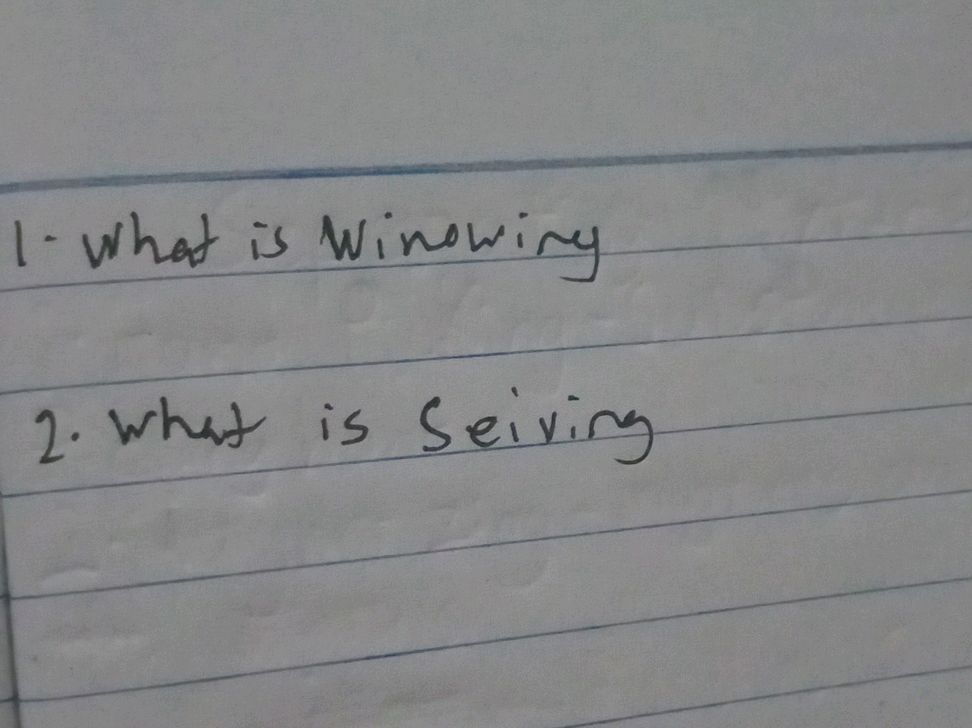 1. What is Winowing
2. What is Seiving